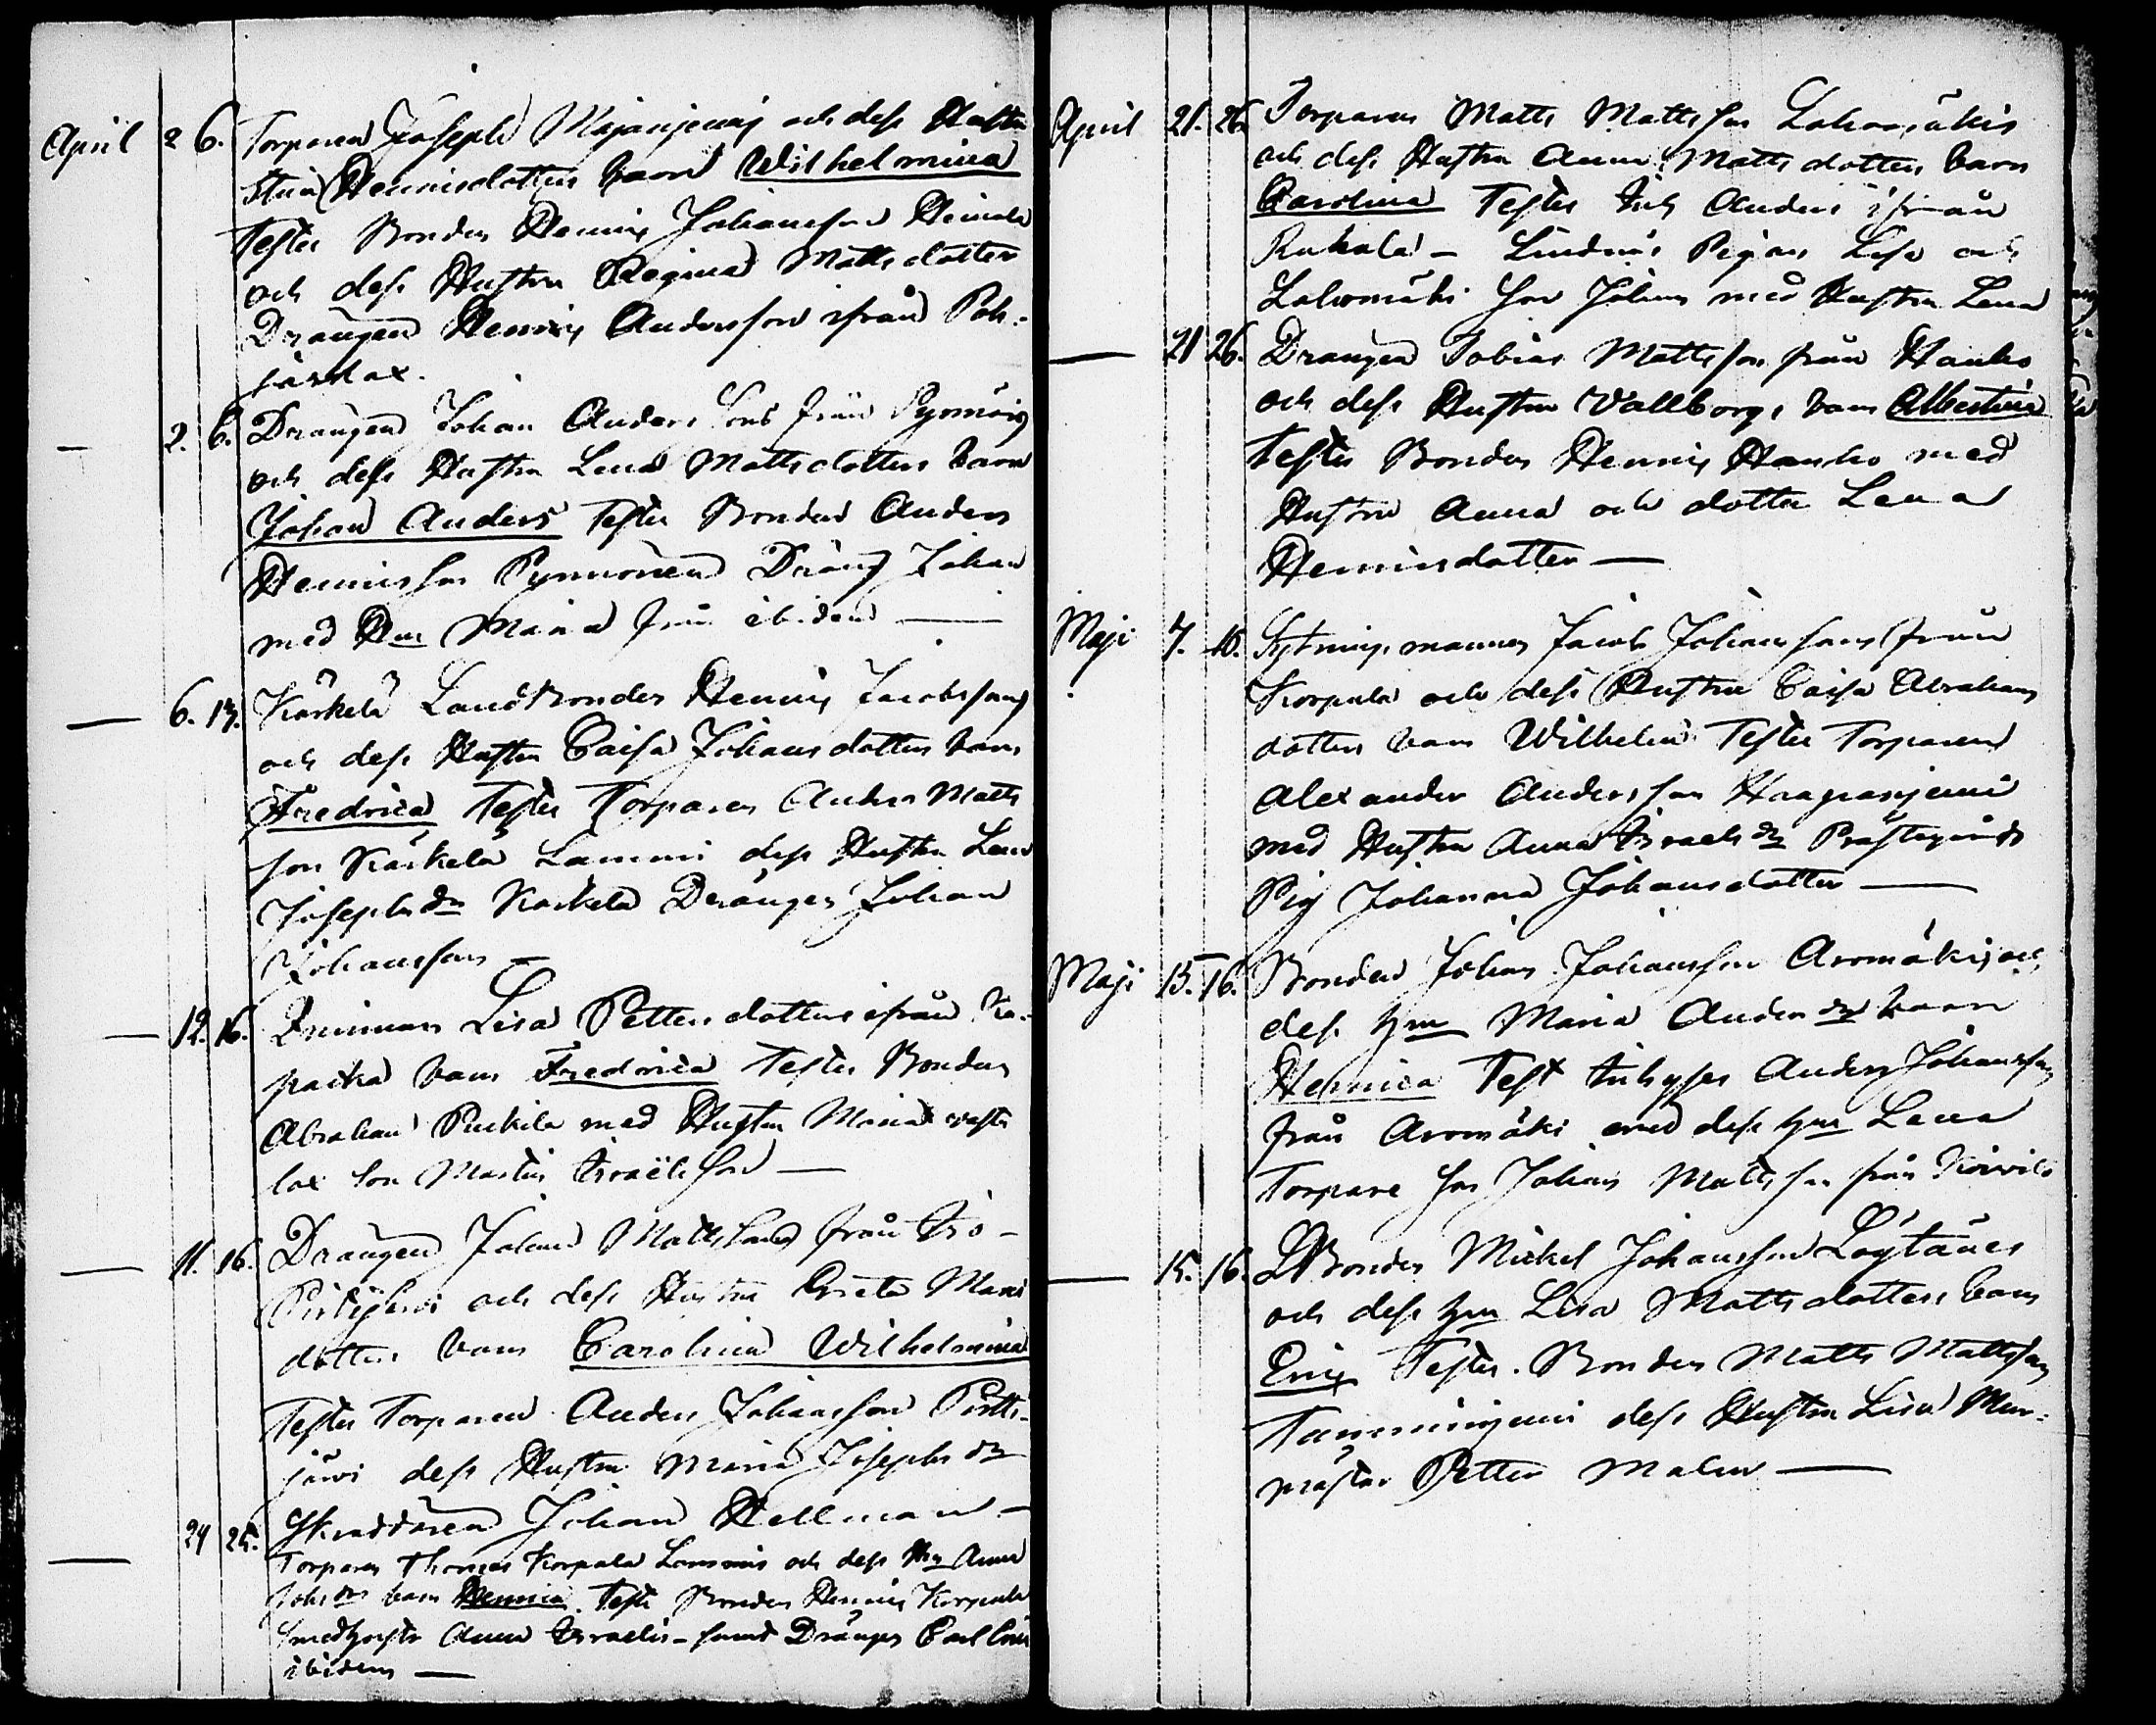 April 2 6. Torparen Joseph Majaniemis och dess Hustru
Stina Henricsdotters barn Wilhelmina
Testes Bonden Henric Johansson Heimola
och dess Hustru Regina Mattsdotter
Drängen Henric Andersson ifrån Poh-
jaslax.
— 2. 6. Drängen Johan Anders Sons från
och dess Hustru Lena Mattsdotters barn
Johan Anders Testes Bonden Anders
Henricsson Pynnönen Dräng Johan
med Hu Maria från ibidem —
— 6. 13. Kärkelä Landbonden Henric Jacobssons
och dess Hustru Caisa Johansdotters barn
Fredrica Testes Torparen Anders Matts
son Kärkelä Lammi dess Hustru Lena
Josephs dr Kärkelä Drängen Johan
Johansson —
— 12. 16. Qvinnan Lisa Petters dotters ifrån
barn Fredrica Testes Bonden
Abraham med Hustru Maria
lax Son Martin Israelsson —
— 11. 16. Drängen Johan Mattssons från Iso-
och dess Hustru Greta
dotters barn Carolina Wilhelmina
Testes Torparen Anders Johansson Pirtti-
järvi dess Hustru Maria Josephs dr
— 24 25. Skräddaren Johan Hellman —
Torparen Thomas Korpela Lammis och dess Hu Anna
Johs dr barn Henrica. Teste Bonden Henric Korpela
Anna Israelis- samt Drängen Carl
ibidem —
April 21. 26. Torparen Matts Mattsson Lahomäkis
och dess Hustru Anna Matts dotters barn
Carolina Testes Inh Anders ifrån
Ruhala — Pigan Lisa och
Lahomäki Son Johan med Hustru Lena
— 21 26. Drängen Tobias Mattsson från Hanho
och dess Hustru Vallborgs barn Albertina
Testes Bonden Henric Hanho med
Hustru Anna och dotter Lena
Henricsdotter —
Maji 7. 10. Sytningsmannen Jacob Johanssons från
Korpela och dess Hustru Caisa Abrahams
dotters barn Wilhelm Testes Torparen
Alexander Andersson Haapaniemi
med Hustru Anna Israels dr Prästegårds
Pig Johanna Johansdotter —
Maji 15. 16. Bonden Johan Johansson Aromäkis och
dess hu Maria Anders dr barn
Henrica Test Inhyses Anders Johansson
från Aromäki med dess hu Lena
Torpare Son Johan Mattsson från
— 15. 16. LBonden Mickel Johansson Löytänes
och dess hu Lisa Mattsdotters barn
Eric Testes. Bonden Matts Mattsson
Tamminiemi dess Hustru Lisa Mur-
mästar Petter Malm —